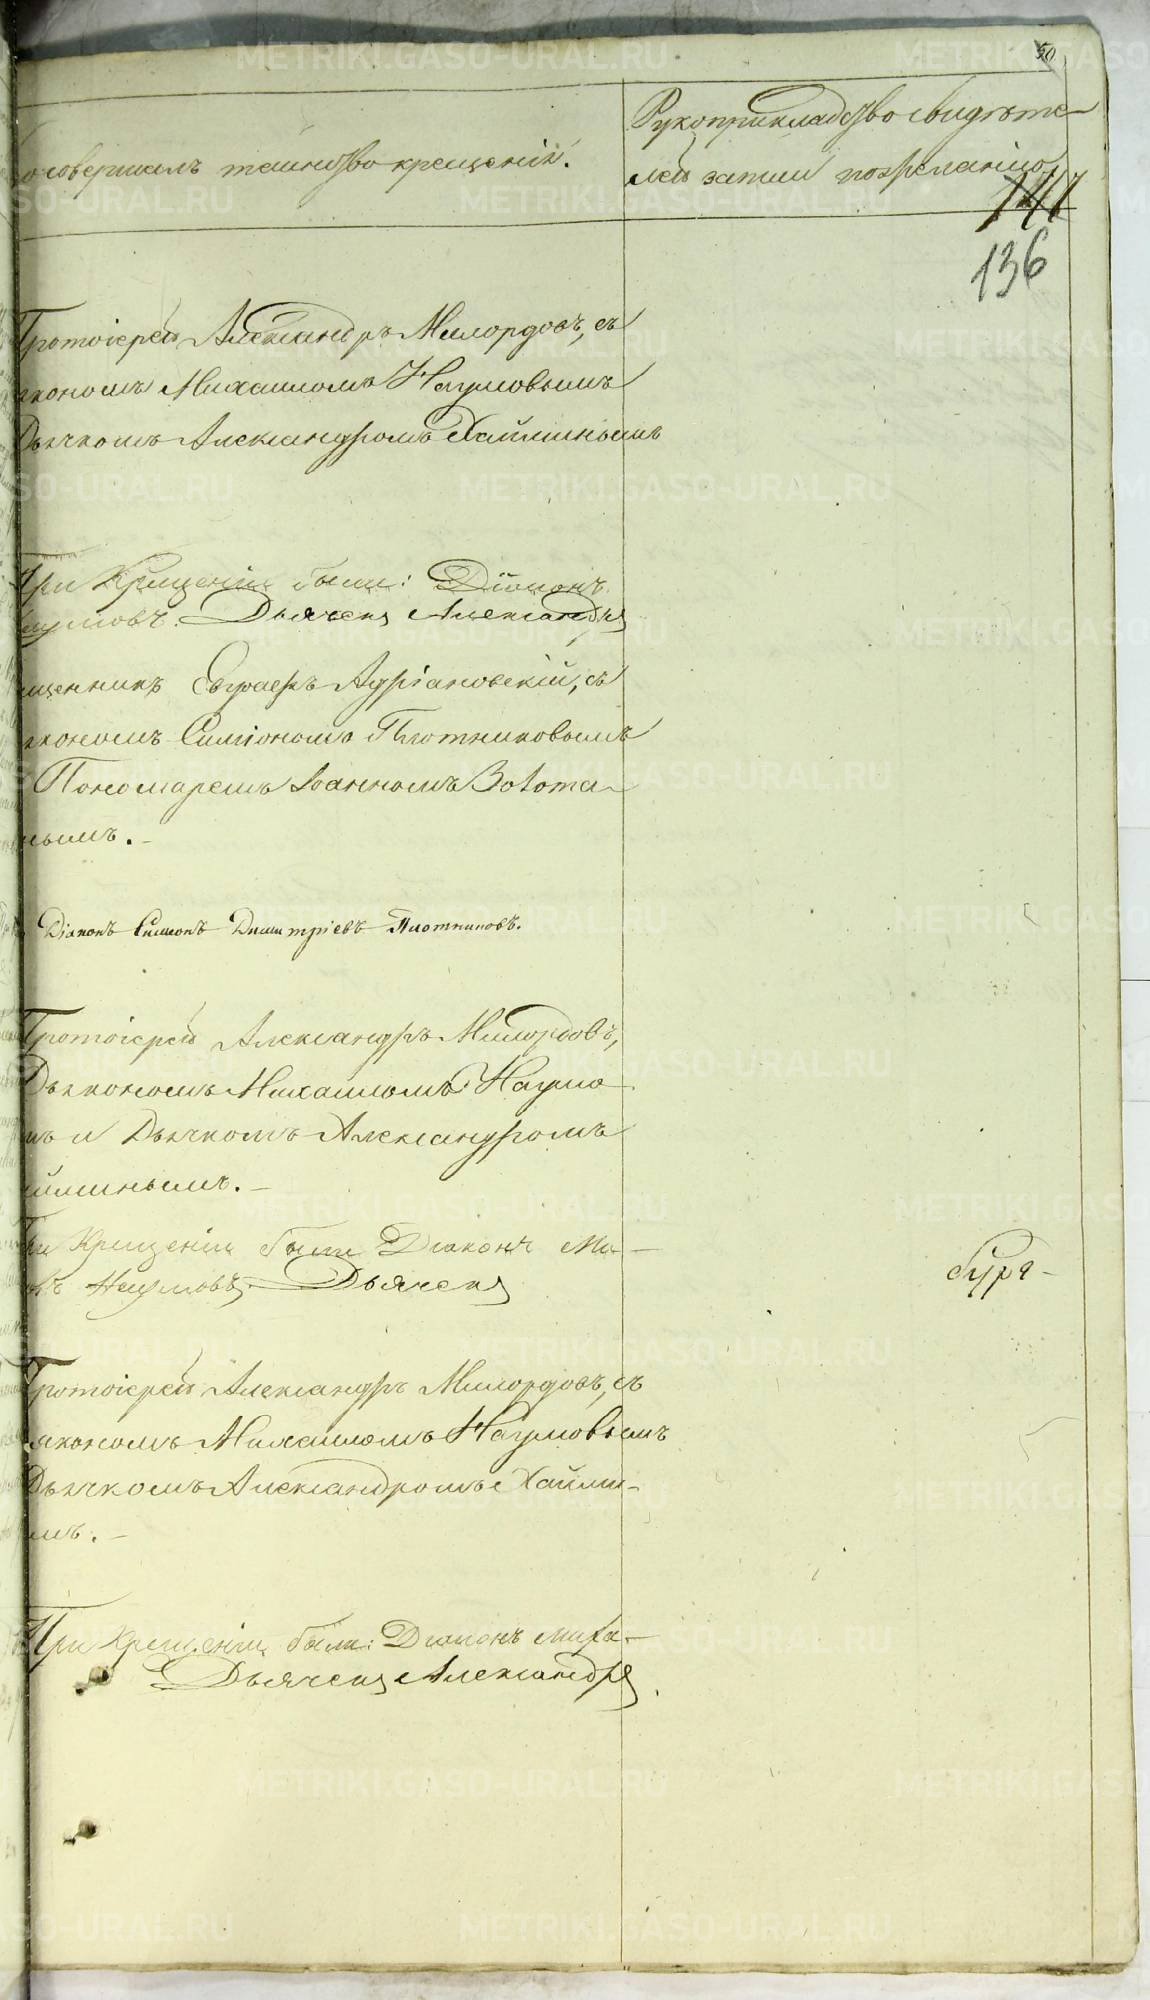 50
совершалъ таинство крещенія.
Рукоприкладство свидѣте-
лей записи по желанію.
141
136
Протоіерей Александръ Милордовъ, съ
якономъ Михаиломъ Наумовымъ
Дьячкомъ Александромъ Хайминымъ
При Крещеніи были: Діаконъ
умовъ. Дьячекъ Александръ
щенникъ Евграфъ Адріановскій, съ
якономъ Симіономъ Плотниковымъ
Пономаремъ Іоанномъ
нымъ. -
Діаконъ Симеонъ Димитріевъ Плотниковъ.
Протоіерей Александръ Милордовъ,
Дьякономъ Михаиломъ Наумо
мъ и Дьячкомъ Александромъ
йминымъ. -
При Крещеніи были Діаконъ Ми-
лъ Наумовъ. Дьячекъ
Протоіерей Александръ Милордовъ, съ
якономъ Михаиломъ Наумовымъ
Дьячкомъ Александромъ Хайми-
мъ. -
При Крещеніи были: Діаконъ Миха-
Дьячекъ Александръ
METRIKI.GASO-URAL.RU